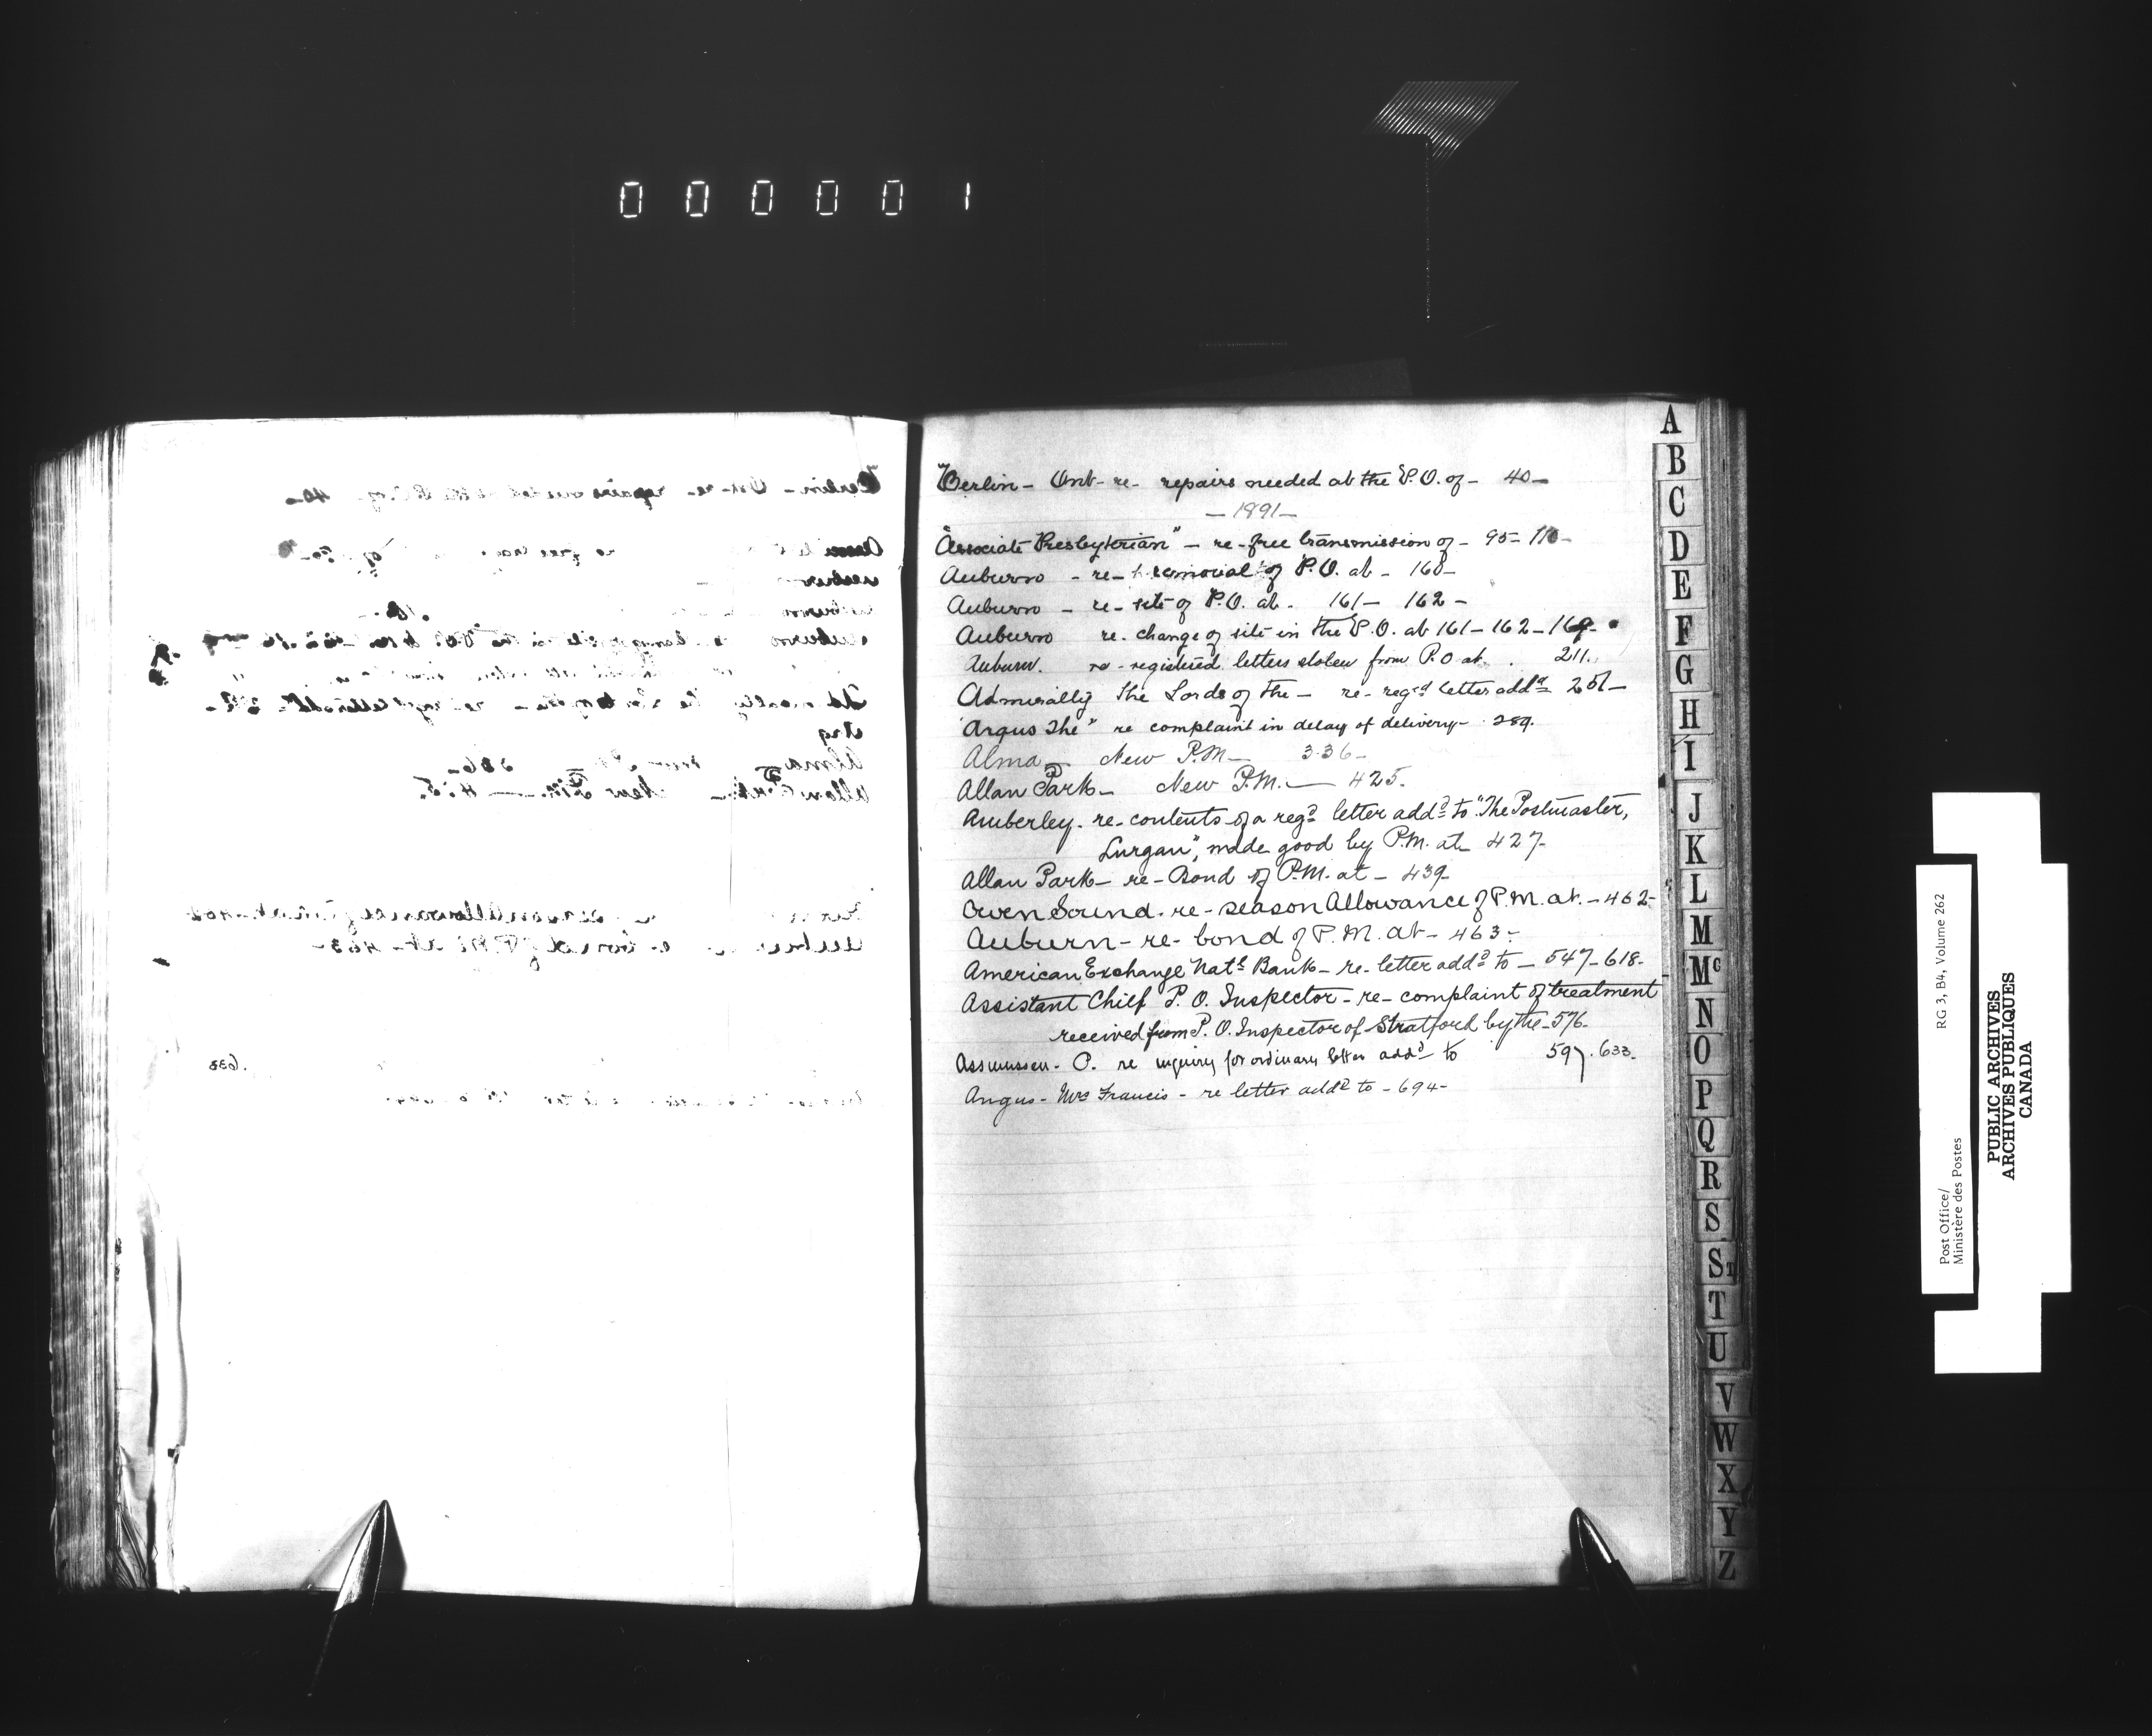 000001
Berlin - Ont - re - repairs needed at the P.O. of - 40 -
- 1891 -
"Associate Presbyterian" - re - free transmission of - 95 -
Auburn - re - removal of P.O. at - 160 -
Auburn - re - site of P.O. at - 161 - 162 -
Auburn re. change of site in the P.O. at 161 - 162 -
Auburn. re - registered letters stolen from P.O at . 211.
Admirally the Lords of the - re - regd letter addd 251 -
"Argus The" re complaint in delay of delivery - 289.
Alma - New P.M - 336 -
Allan Park - New P.M. - 425.
Amberley - re - contents of a regd letter addd to "The Postmaster,
Lurgan", made good by P.M. at 427 -
Allan Park - re - Bond of P.M. at - 439 -
Owen Sound - re - season Allowance of P.M. at - 462 -
Auburn - re - bond of P.M. at - 463 -
American Exchange Natl Bank - re - letter addd to - 547 - 618 -
Assistant Chief P. O. Inspector - re - complaint of treatment
received from P. O. Inspector of Stratford by the - 576 -
Assmussen - P. re inquiry for ordinary letter addd to 597. 633.
Angus - Mrs Francis - re letter addd to - 694 -
A
B
C
D
E
F
G
H
I
J
K
L
M
Mc
N
O
P
Q
R
S
ST
T
U
V
W
X
Y
Z
Post Office/ RG 3, B4, Volume 262
Ministère des Postes
PUBLIC ARCHIVES
ARCHIVES PUBLIQUES
CANADA